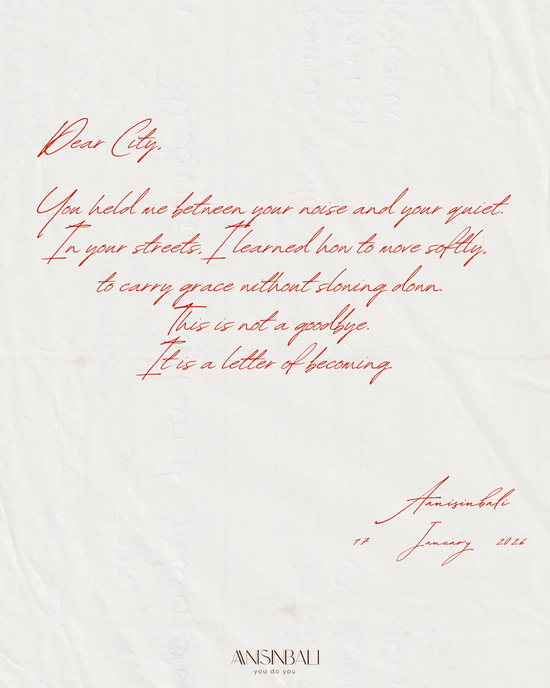 Dear City,
You held me between your noise and your quiet.
In your streets, I learned how to move softly,
to carry grace without slowing down.
This is not a goodbye.
It is a letter of becoming.
Aanisinbali
17 January 2026
AANISINBALI
you do you